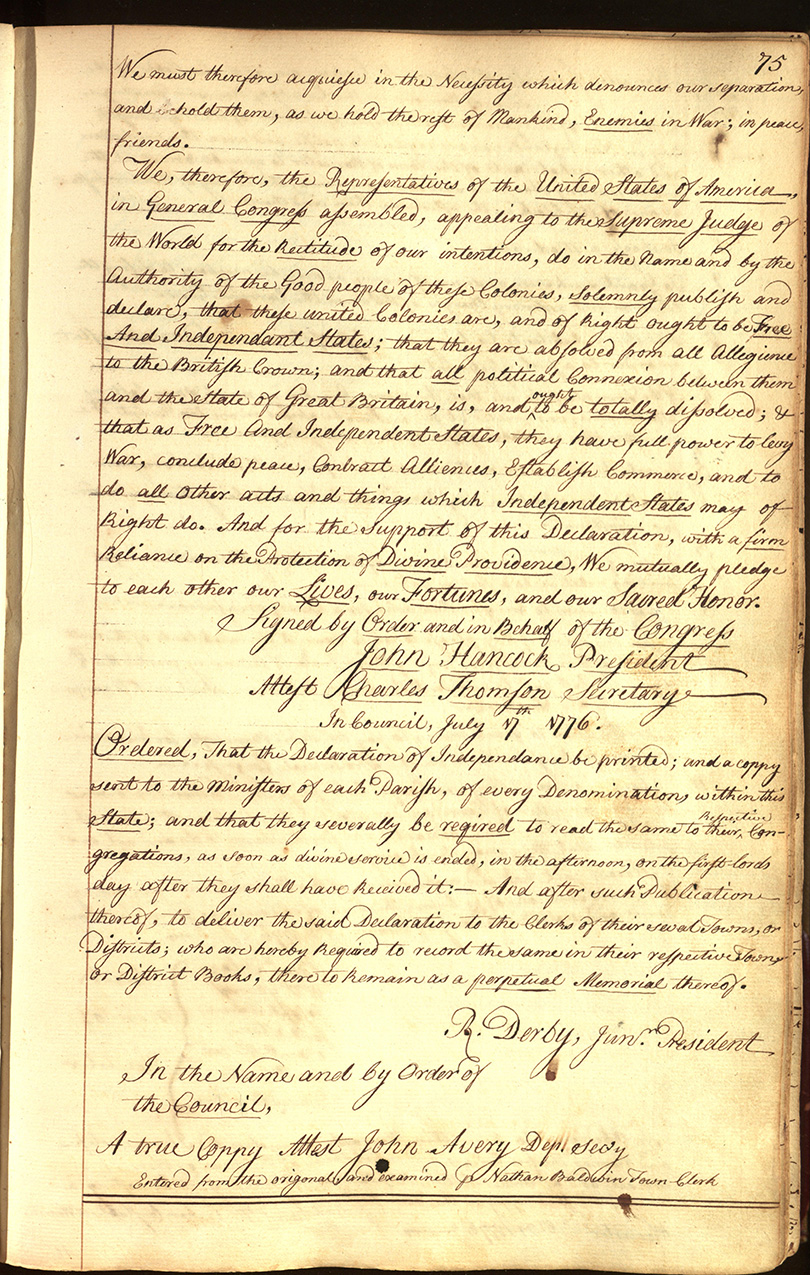 75
We must therefore acquiesce in the Necessity which denounces our separation,
and hold them, as we hold the rest of Mankind, Enemies in War; in peace
friends.
We, therefore, the Representatives of the United States of America,
in General Congress assembled, appealing to the Supreme Judge of
the World for the Rectitude of our intentions, do in the Name and by the
Authority of the Good people of these Colonies, Solemnly publish and
declare, that these united Colonies are, and of Right ought to be Free
And Independant States; that they are absolved from all Allegience
to the British Crown; and that all political Connexion between them
and the State of Great Britain, is, and ought to be totally dissolved; &
that as Free And Independent States, they have full power to levy
War, conclude peace, Contract Alliences, Establish Commerce, and to
do all other acts and things which Independent States may of
Right do. And for the support of this Declaration, with a firm
Reliance on the Protection of Divine Providence, We mutually pledge
to each other our Lives, our Fortunes, and our Sacred Honor.
Signed by Order and in Behalf of the Congress
John Hancock President
Attest Charles Thomson Secretary
In Council, July 17th 1776.
Ordered, That the Declaration of Independance be printed; and a coppy
sent to the Ministers of each Parish, of every Denomination, within this
State; and that they severally be reqired to read the same to their Respective Con-
gregations, as soon as divine service is ended, in the afternoon, on the first lords
day after they shall have Received it:— And after such Publication
thereof, to deliver the said Declaration to the Clerks of their seval Towns, or
Districts; who are hereby Reqired to record the same in their respective Town
or District Books, there to Remain as a perpetual Memorial thereof.
R. Derby, Junr. President
In the Name and by Order of
the Council,
A true Coppy Attest John Avery Dep. Secy
Entered from the origonal and examined p Nathan Baldwin Town Clerk